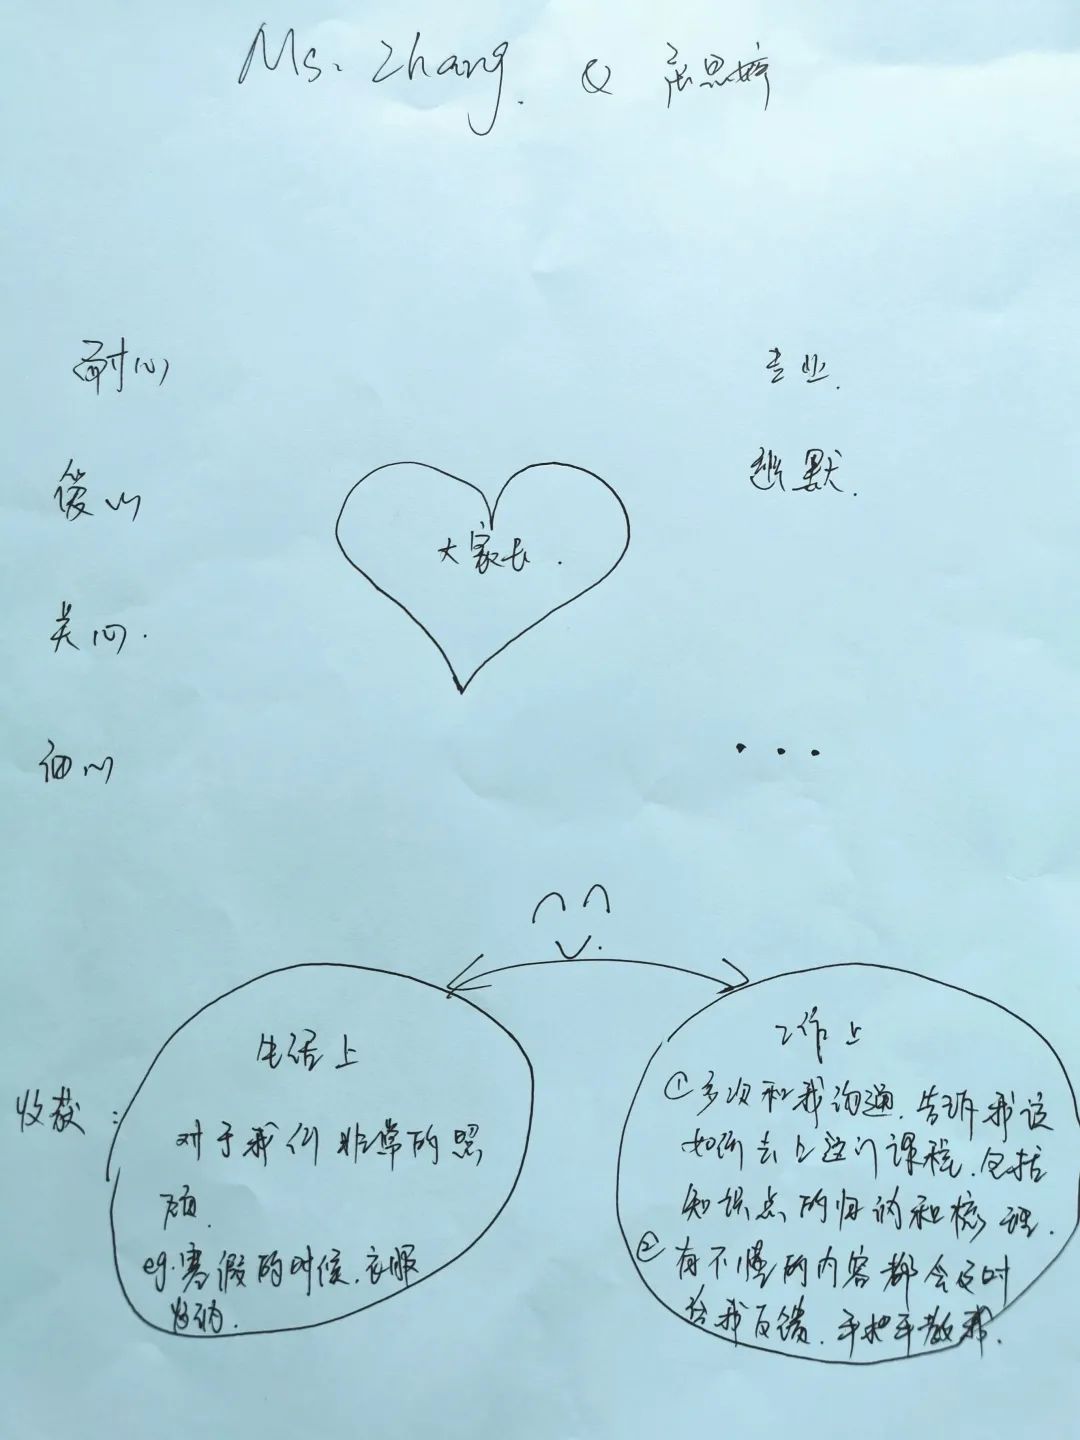 Ms. Zhang. & 思婷
耐心
专业.
爱心
幽默.
大家长.
关心.
细心
...
收获:
生活上
对于我们非常的照
顾.
eg.寒假的时候.衣服
收纳.
工作上
①多次和我沟通.告诉我该
如何去上这门课程.包括
知识点的归纳和梳理.
②有不懂的内容都会及时
给我反馈.手把手教我.